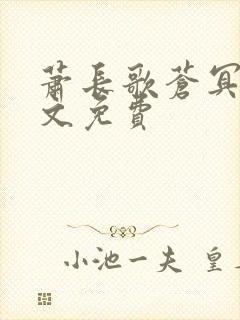 萧长歌苍冥
文免费
小池一夫 皇